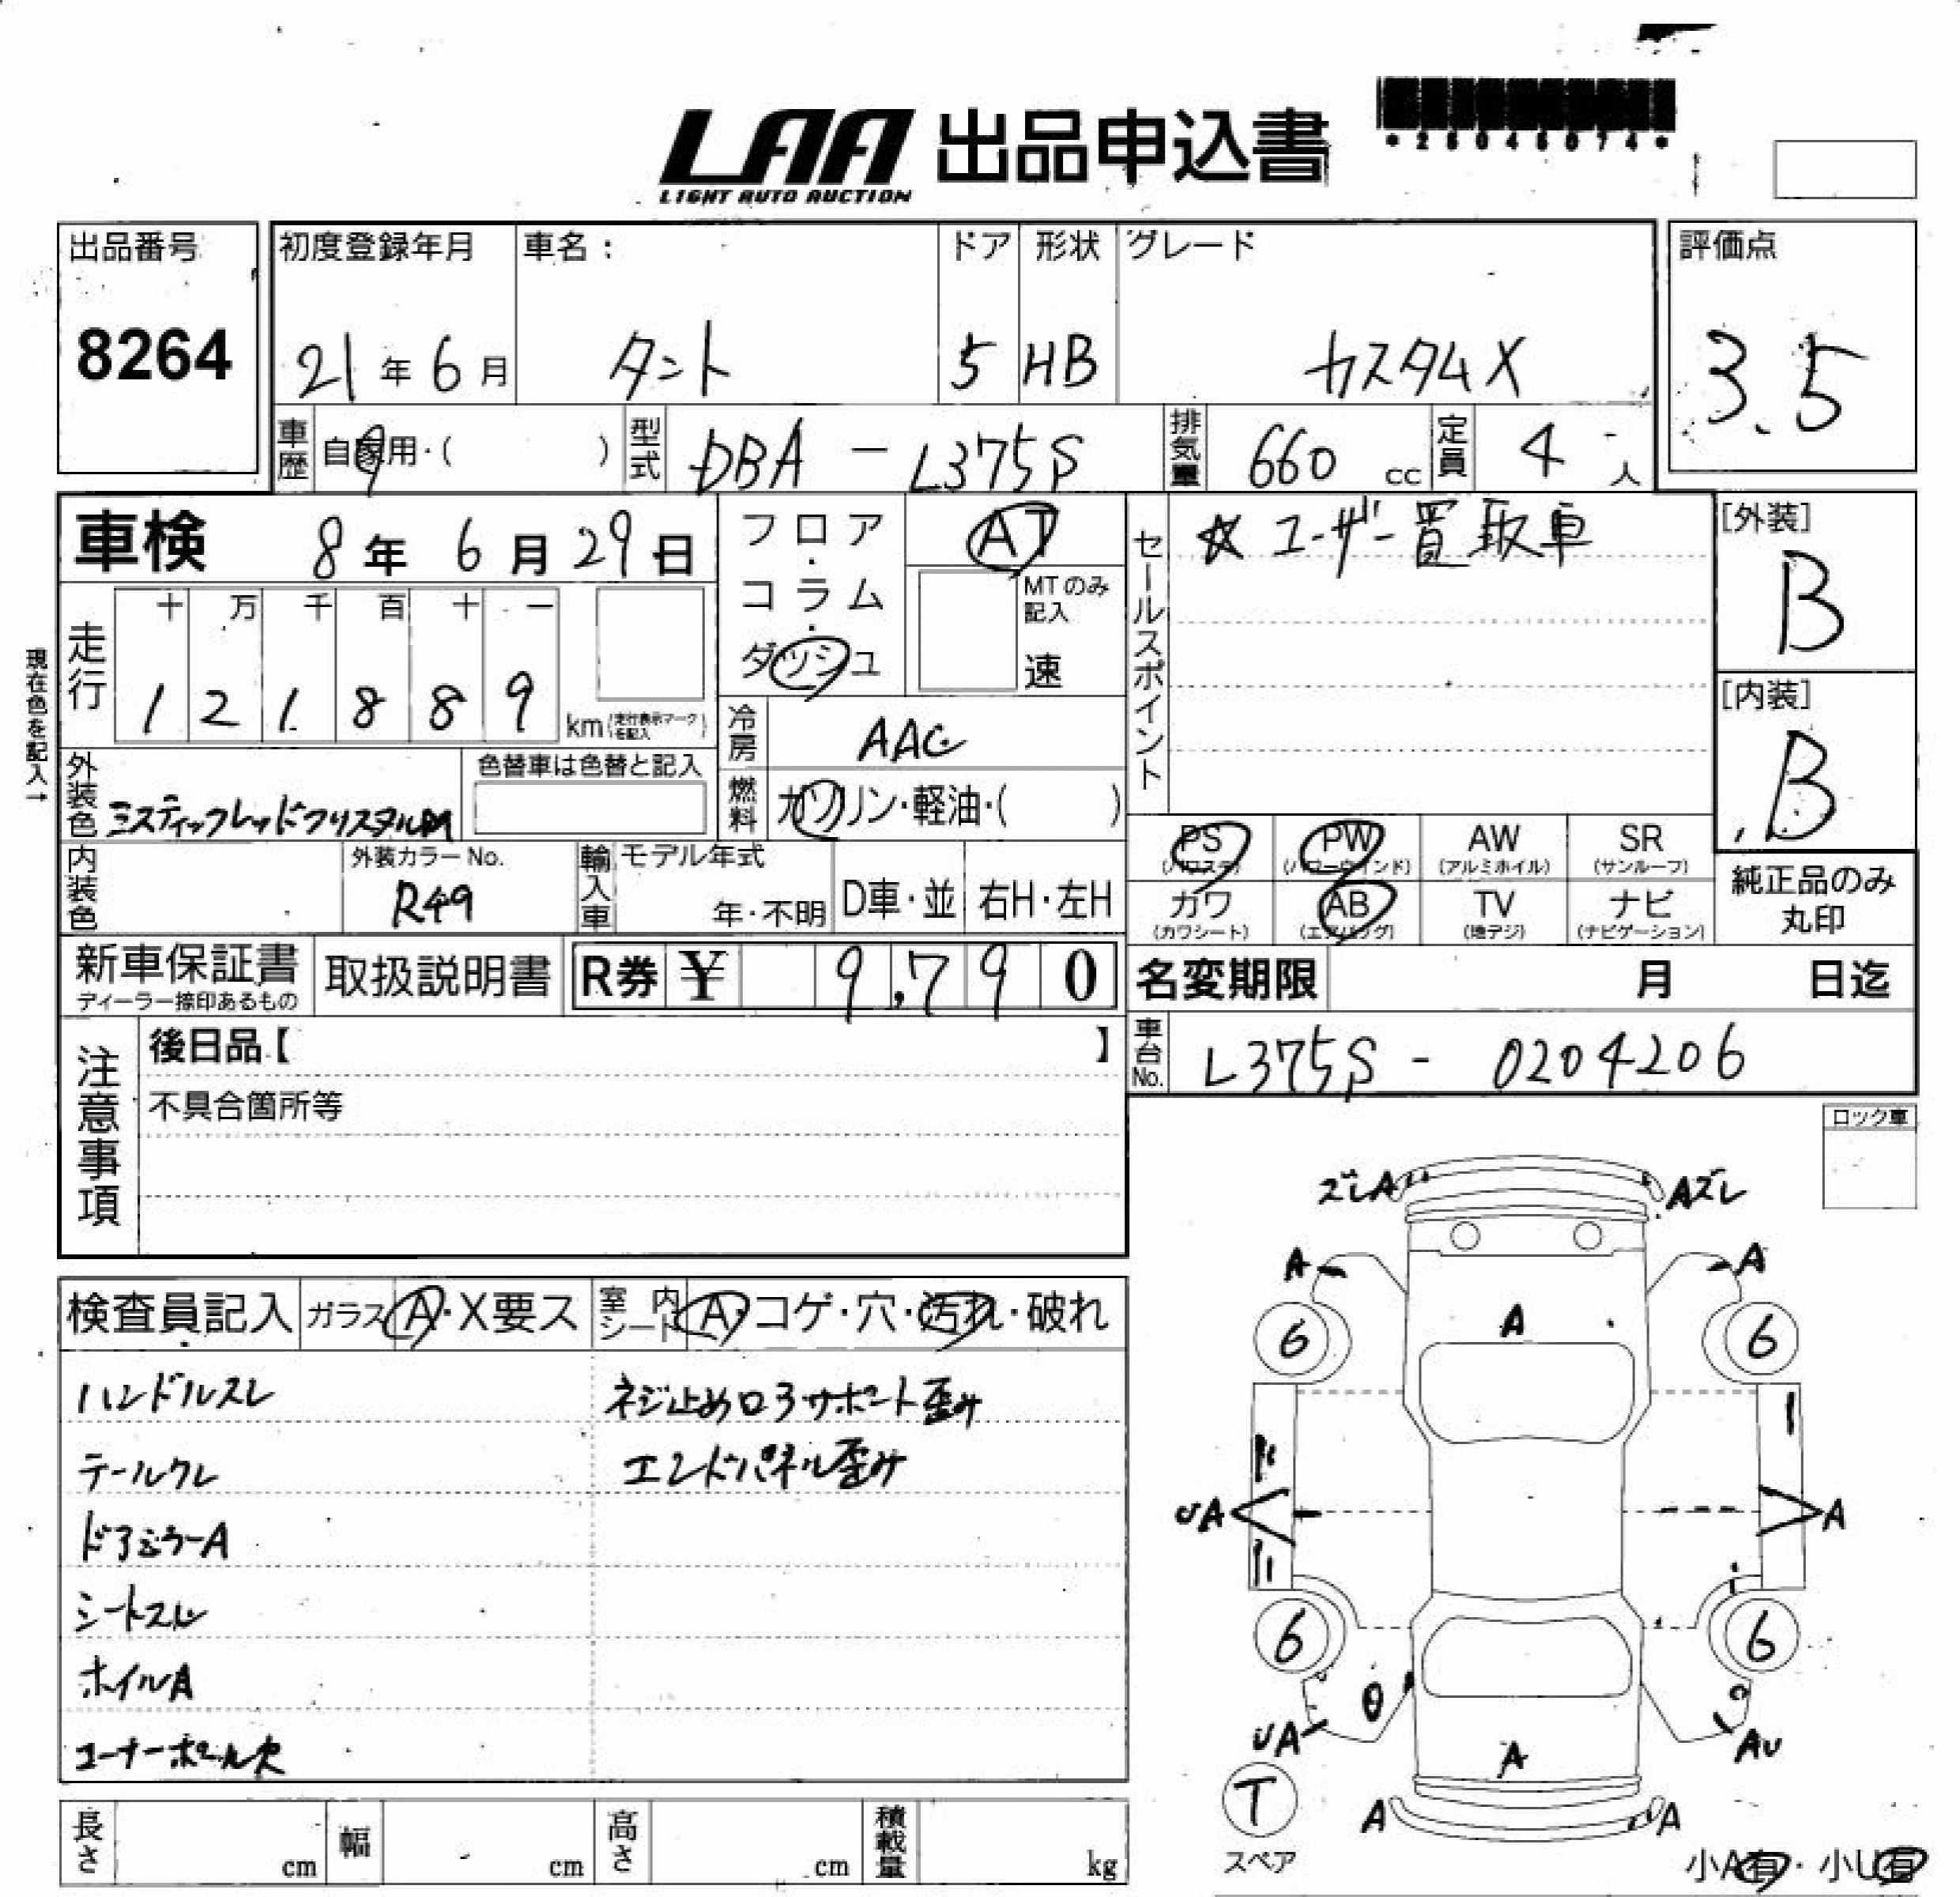 LAA 出品申込書
LIGHT AUTO AUCTION
出品番号
8264
初度登録年月
21年6月
車名：
タント
ドア
5
形状
HB
グレード
カスタムX
評価点
3.5
車歴
自家用・( )
型式
DBA - L375S
排気量
660 cc
定員
4人
車検 8年6月29日
フロア・コラム・ダッシュ
AT
MTのみ記入
速
セールスポイント
☆ユーザー買取車
[外装]
B
[内装]
B
現在色を記入→
走行
十 万 千 百 十 一
1 2 1 8 8 9 km (走行表示マークを記入)
冷房
AAC
外装色
ミスティックレッドクリスタルM
色替車は色替と記入
燃料
ガソリン・軽油・( )
PS (パワステ)
PW (パワーウインド)
AW (アルミホイル)
SR (サンルーフ)
カワ (カワシート)
AB (エアバッグ)
TV (地デジ)
ナビ (ナビゲーション)
純正品のみ丸印
内装色
外装カラーNo.
R49
輸入車
モデル年式
年・不明
D車・並
右H・左H
新車保証書
ディーラー捺印あるもの
取扱説明書
R券 ¥ 9,790
名変期限 月 日迄
車台No.
L375S - 0204206
注意事項
後日品【 】
不具合箇所等
ロック車
検査員記入
ガラス A・X要ス
室内シート A・コゲ・穴・汚れ・破れ
ハンドルスレ
テールクレ
ドアミラーA
シートスレ
ホイルA
コーナーポール欠
ネジ止めロアサポート歪み
エンドパネル歪み
ズレA
Aズレ
A
A
6
6
A
UA
A
6
6
UA
AU
A
T
スペア
A
A
小A有・小U有
長さ cm
幅 cm
高さ cm
積載量 kg